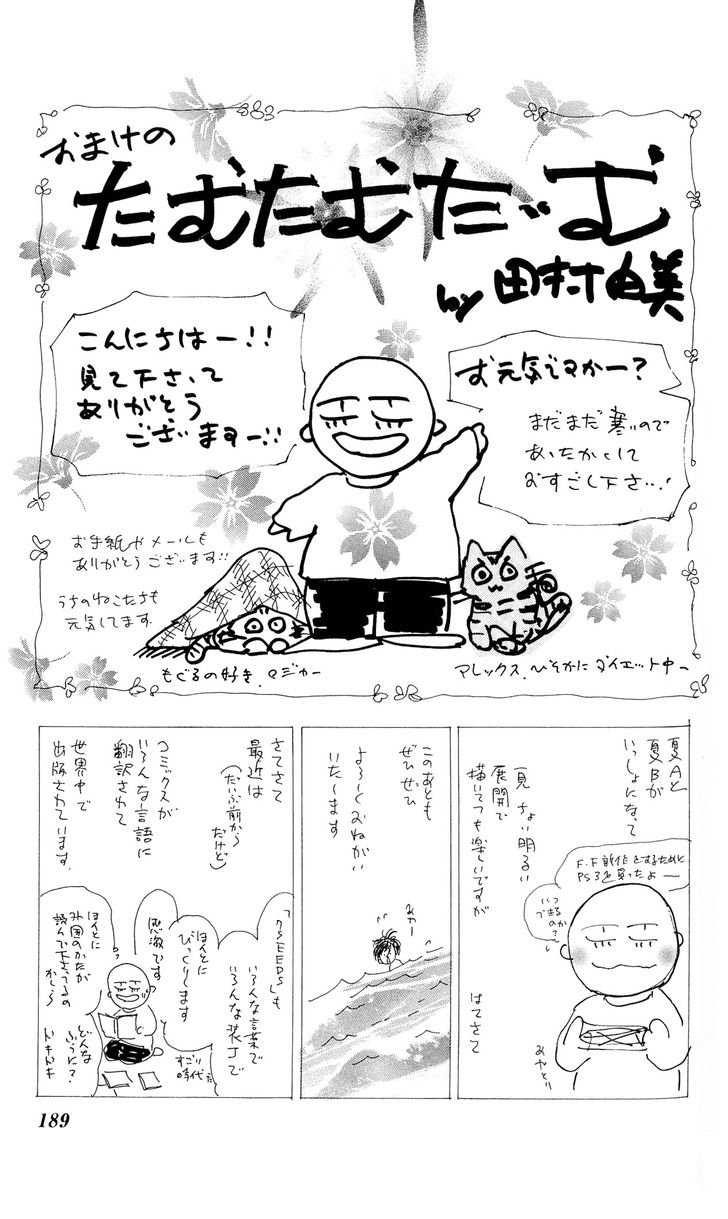 おまけの
たむたむたいむ
by 田村由美
こんにちはー!!
見て下さって
ありがとう
ございますー!!
お元気ですかー?
まだまだ寒いので
あったかくして
おすごし下さい!
お手紙やメールも
ありがとうございます!!
うちのねこたちも
元気してます
もぐるの好き マジカー
アレックス ひそかにダイエット中〜
夏Aと
夏Bが
いっしょになって
一見 ちょい明るい
展開で
描いてても楽しいですが
はてさて
F.F新作をするために
PS3を買ったよー
いつ
できるのか?
みやとり
このあとも
ぜひぜひ
よろしくおねがい
いたします
さてさて
最近は
(だいぶ前から
だけど)
コミックスが
いろんな言語に
翻訳されて
世界中で
出版されています
「7SEEDS」も
いろんな言葉で
いろんな装丁で
ほんとに
びっくりします
感激です
すごい
時代だ
ほんとに
外国のかたが
読んで下さってるの
かしら
どんな
ふうに?
ドキドキ
189